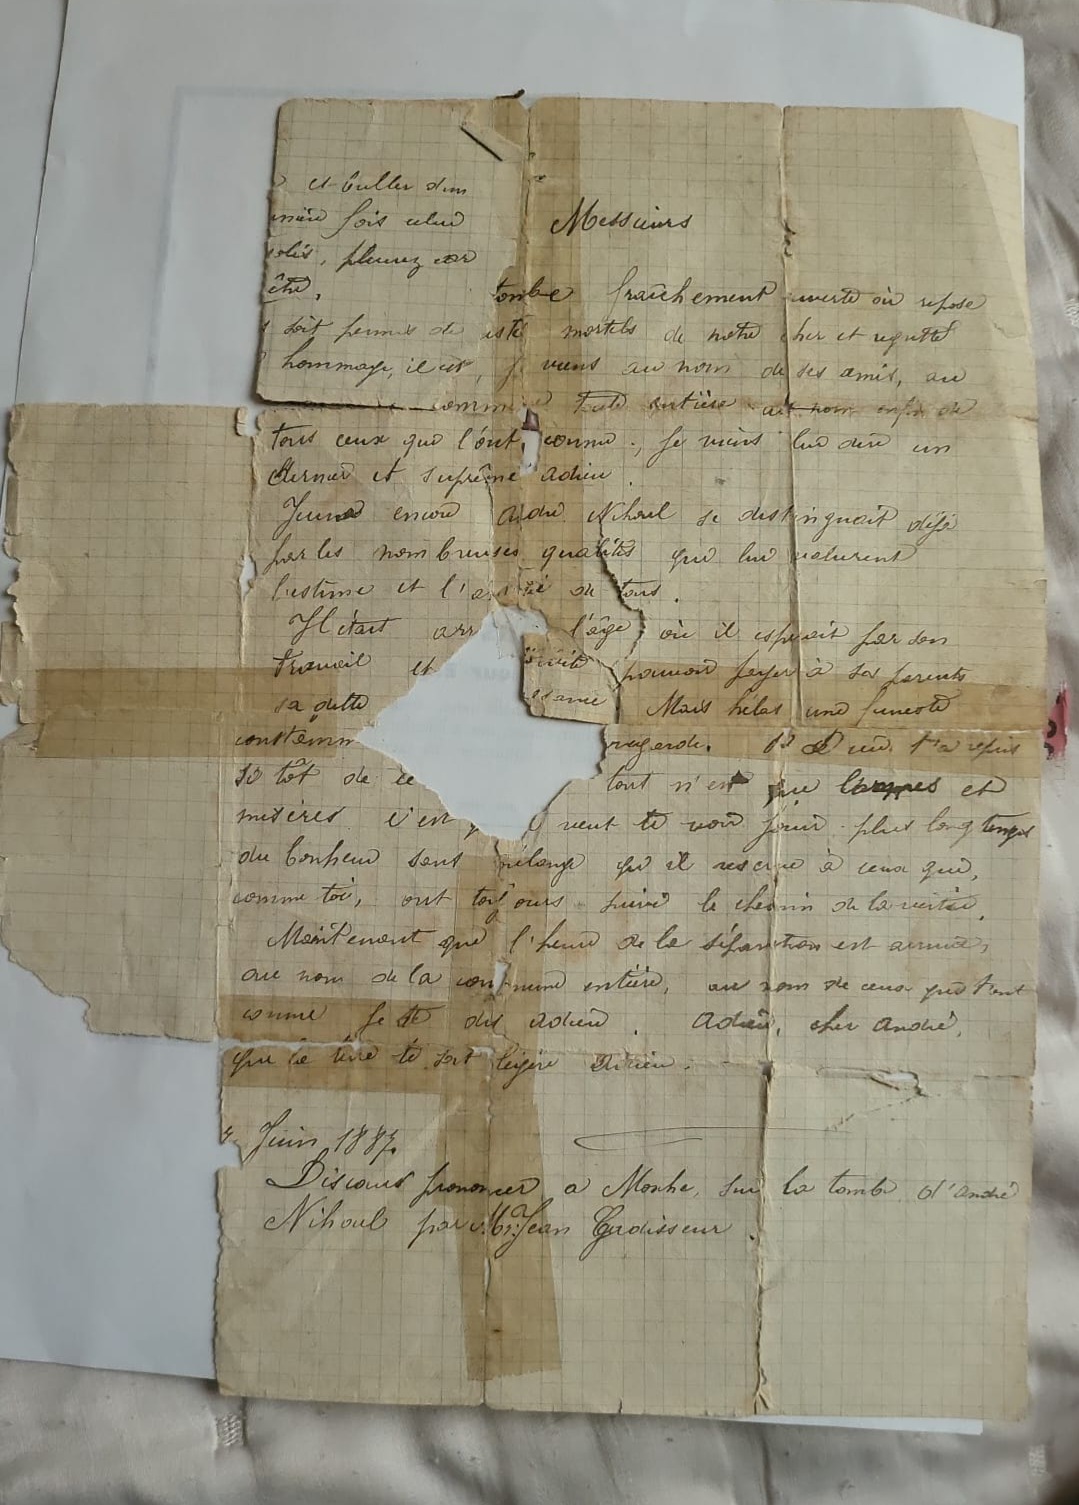 et
fois
Messieurs
pleurez
tombe fraîchement ouverte où repose
soit permis de mortels de notre cher et regretté
hommage, il est, je viens au nom de ses amis, au
toute entière au nom enfin de
tous ceux que l'ont connu, je viens lui dire un
dernier et suprême adieu.
Jeune encore André Nihoul se distinguait déjà
par les nombreuses qualités qui lui valurent
l'estime et l' de tous.
Il était arr l'âge où il espérait par son
travail et pouvoir payer à ses parents
sa dette Mais hélas une funeste
regarde. t'a repris
si tôt de ce tout n'est que larmes et
misères c'est veut te voir jouir plus longtemps
du bonheur sans mélange qu'il reserve à ceux qui,
comme toi, ont toujours suivi le chemin de la vertu.
Maintenant que l'heure de la séparation est arrivée,
au nom de la commune entière, au nom de ceux qui t'ont
connu je te dis adieu. Adieu, cher André,
que la terre te soit légère Adieu.
Juin 1887.
Discours prononcer a Monhe, sur la tombe d'André
Nihoul par Mr. Jean Tradisseur.